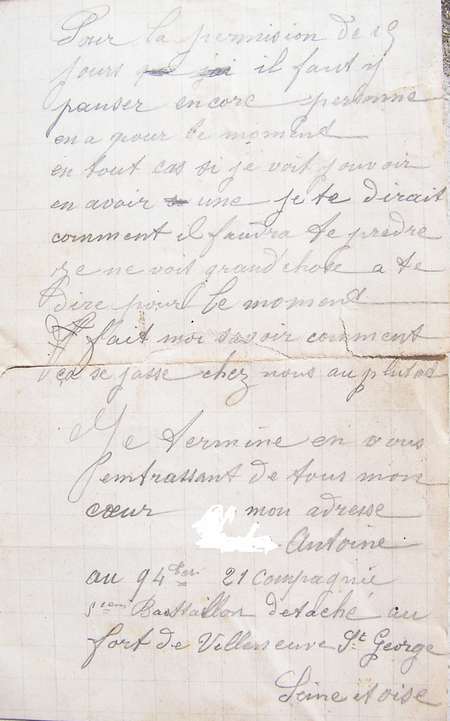 Pour la permision de 15
jours il faut y
panser encore personne
en a pour le moment
en tout cas si je voit pouvoir
en avoir une je te dirait
comment il faudra te predre
Je ne voit grand chose a te
dire pour le moment
fait moi savoir comment
ça se passe chez nous au plutot
Je termine en vous
embrassant de tous mon
cœur mon adresse
Antoine
au 94 21 Compagnie
Battaillon detaché au
fort de Villeneuve St George
Seine et oise